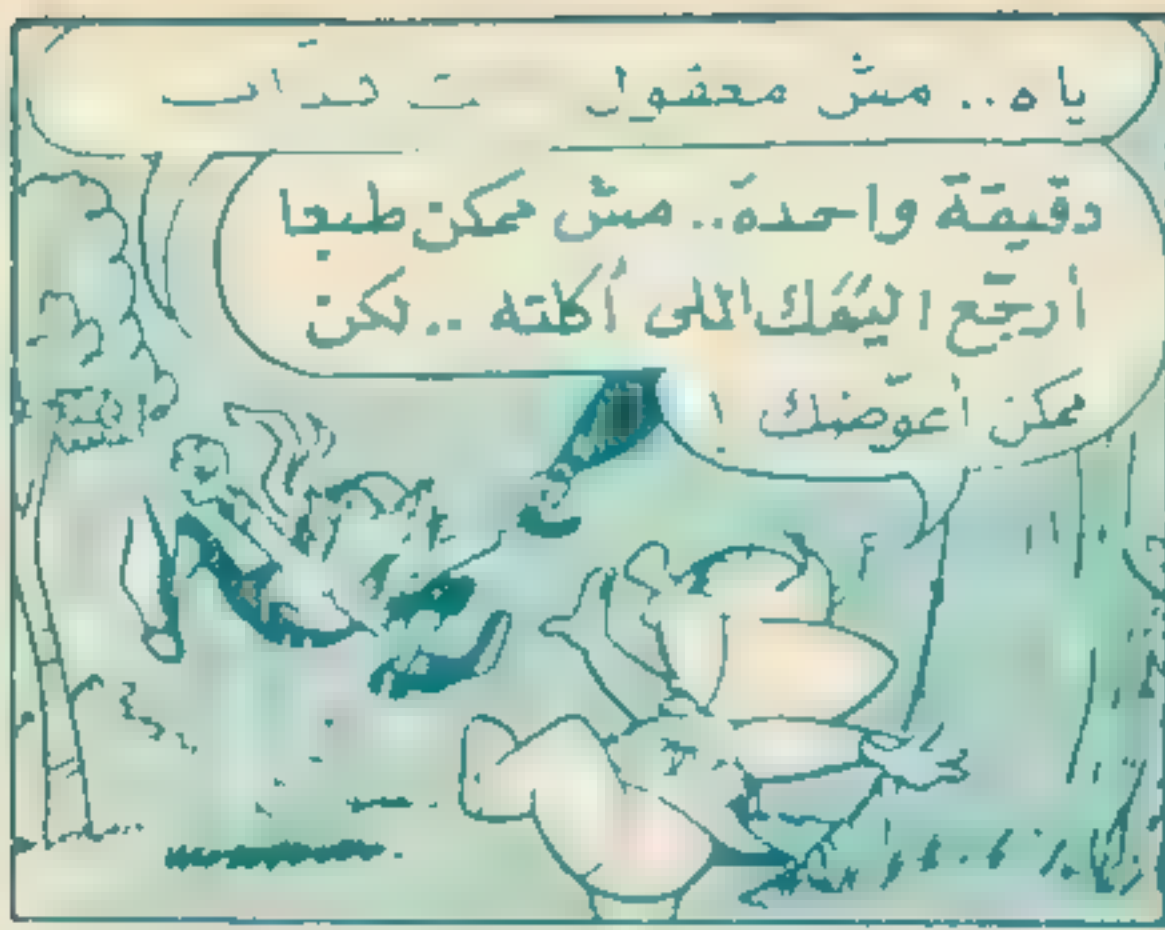 ياه.. مش معقول
دقيقة واحدة.. مش ممكن طبعا
أرجّع اللى أكلته.. لكن
ممكن أعوّضك!